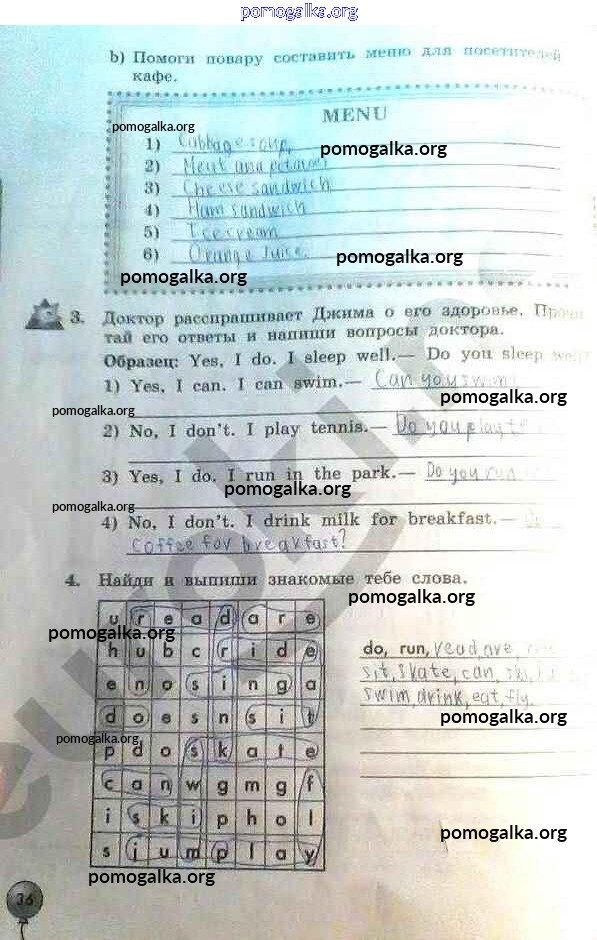 pomogalka.org
b) Помоги повару составить меню для посетителей
кафе.
MENU
pomogalka.org
1) Cabbage soup,
pomogalka.org
2) Meat and potatoes
3) Cheese sandwich
4) Ham sandwich
5) Icecream
6) Orange Juice.
pomogalka.org
pomogalka.org
3. Доктор расспрашивает Джима о его здоровье.
тай его ответы и напиши вопросы доктора.
Образец: Yes, I do. I sleep well.— Do you sleep well?
1) Yes, I can. I can swim.— Can you swim
pomogalka.org
pomogalka.org
2) No, I don't. I play tennis.— Do you play
3) Yes, I do. I run in the park.— Do you run
pomogalka.org
pomogalka.org
4) No, I don't. I drink milk for breakfast.—
coffee for breakfast?
4. Найди и выпиши знакомые тебе слова.
pomogalka.org
u r e a d a r e
pomogalka.org
h u b c r i d e
e n o s i n g a
d o e s n s i t
pomogalka.org
p d o s k a t e
c a n w g m g f
i s k i p h o l
s j u m p l a y
do, run, read are,
sit, skate, can, ski,
swim, drink, eat, fly.
pomogalka.org
pomogalka.org
pomogalka.org
36